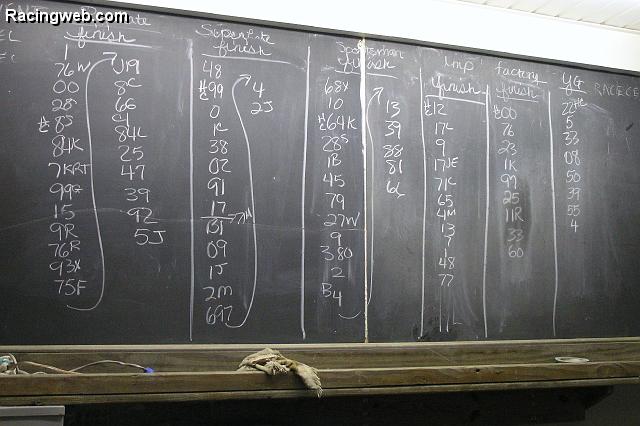 Racingweb.com
finish
1
76W
00
28
#8S
84K
7KRT
99G
15
9R
76R
93X
75F
U19
8C
6G
4
84L
25
47
39
92
5J
Superlate
finish
48
#99
0
1C
38
02
91
17
7M
B1
09
15
2M
697
4
2J
Sportsman
finish
68X
10
#64K
28S
1B
45
79
27W
9
380
2
B4
13
39
88
81
6L
Imp
finish
#12
17L
9
17JE
71C
65
4M
13
7
1
48
77
factory
finish
#00
76
23
1K
99
25
11R
33
60
YG
22HC
5
33
08
50
39
55
4
RACECE